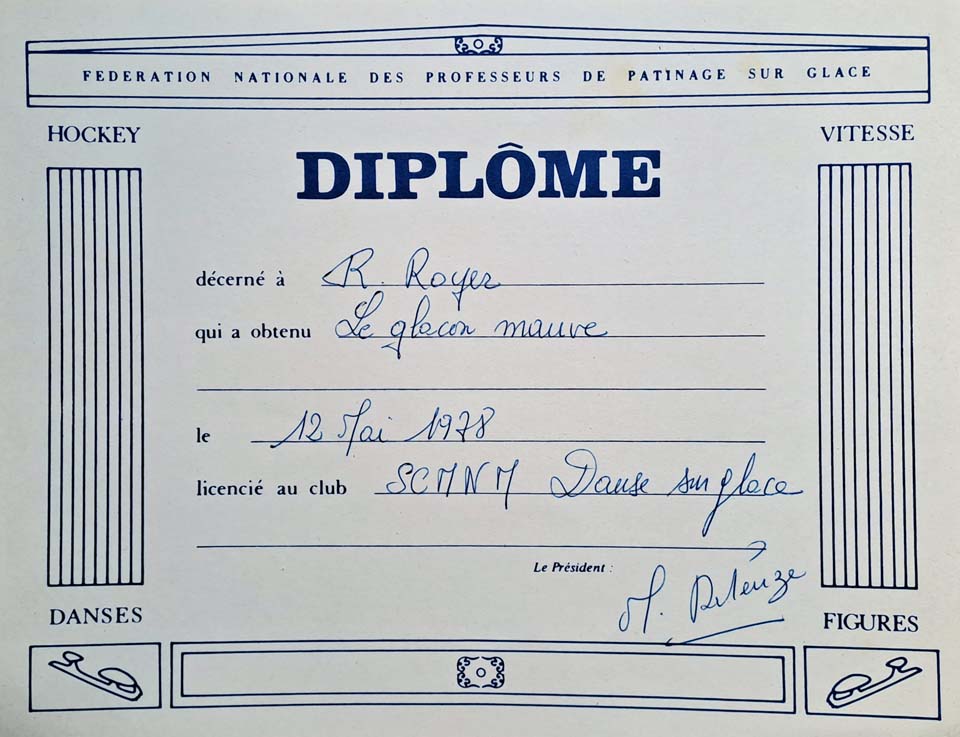 FEDERATION NATIONALE DES PROFESSEURS DE PATINAGE SUR GLACE
HOCKEY
VITESSE
DIPLÔME
décerné à R. Royer
qui a obtenu Le glacon mauve
le 12 Mai 1978
licencié au club SCMNM Danse sur glace
Le Président :
M.
DANSES
FIGURES